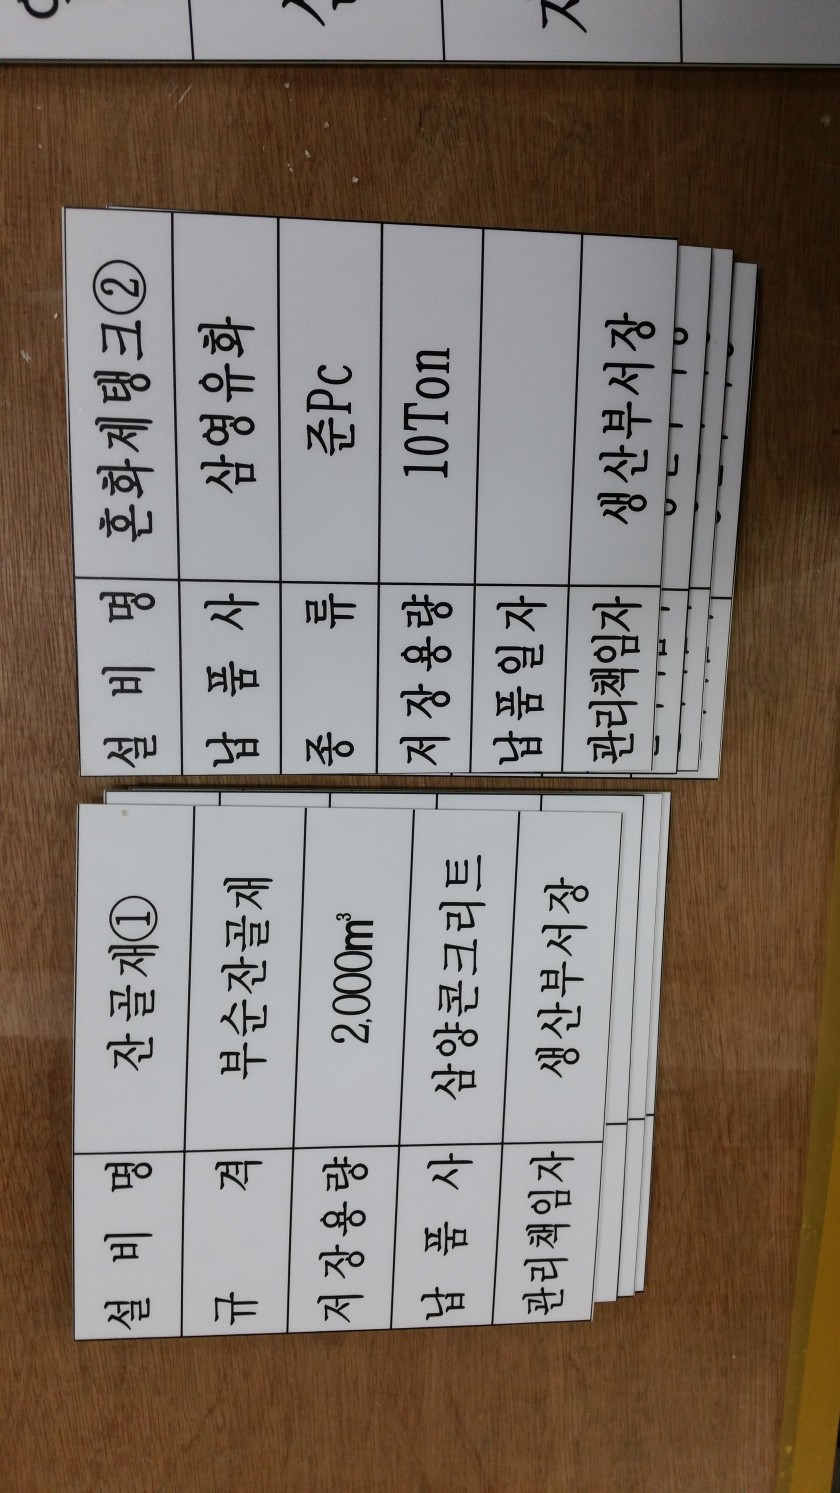 설 비 명 혼화제탱크②
납 품 사 삼영유화
종 류 준Pc
저장용량 10Ton
납품일자
관리책임자 생산부서장
설 비 명 잔골재①
규 격 부순잔골재
저장용량 2,000m³
납 품 사 삼양콘크리트
관리책임자 생산부서장